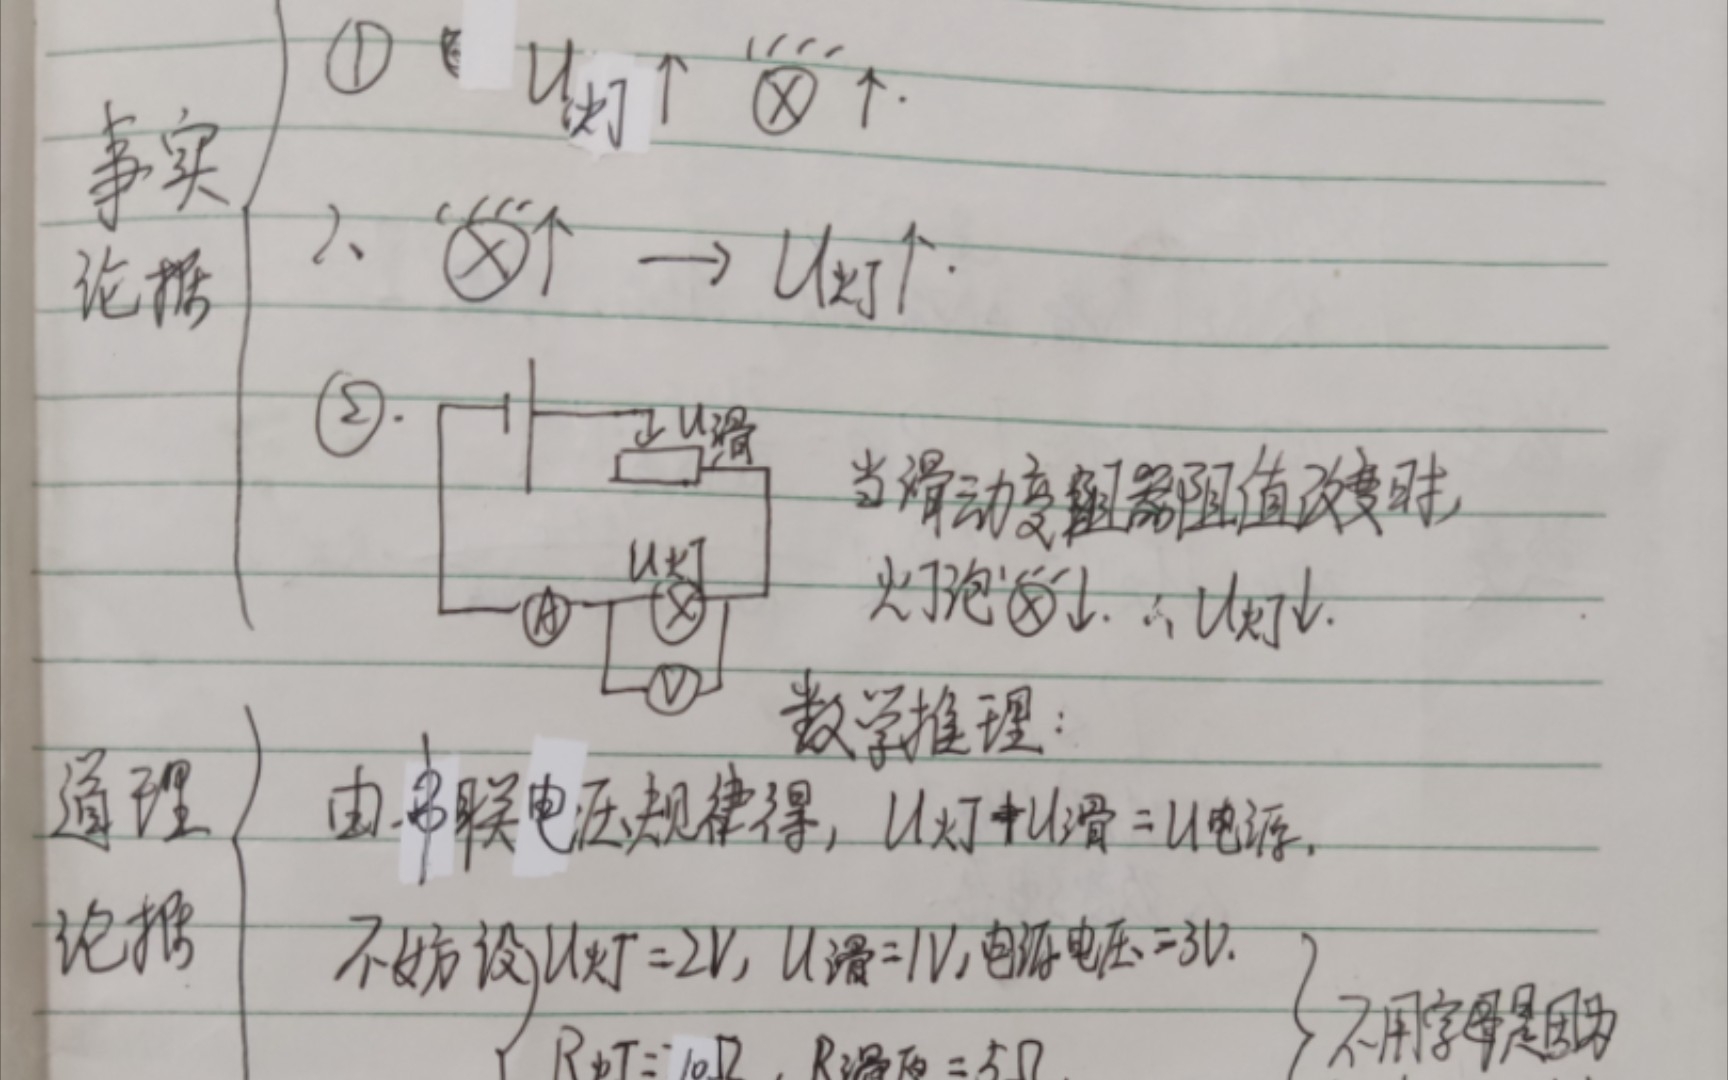 ① U灯↑ ⊗↑.
事实
论据
2、⊗↑ → U灯↑.
②.
U滑
U灯
A
V
当滑动变阻器阻值改变时,
灯泡⊗↓. ∴U灯↓.
数学推理:
道理
论据
由串联电压规律得, U灯+U滑=U电源.
不妨设 U灯=2V, U滑=1V, 电源电压=3V.
R灯=10Ω, R滑原=5Ω.
不用字母是因为